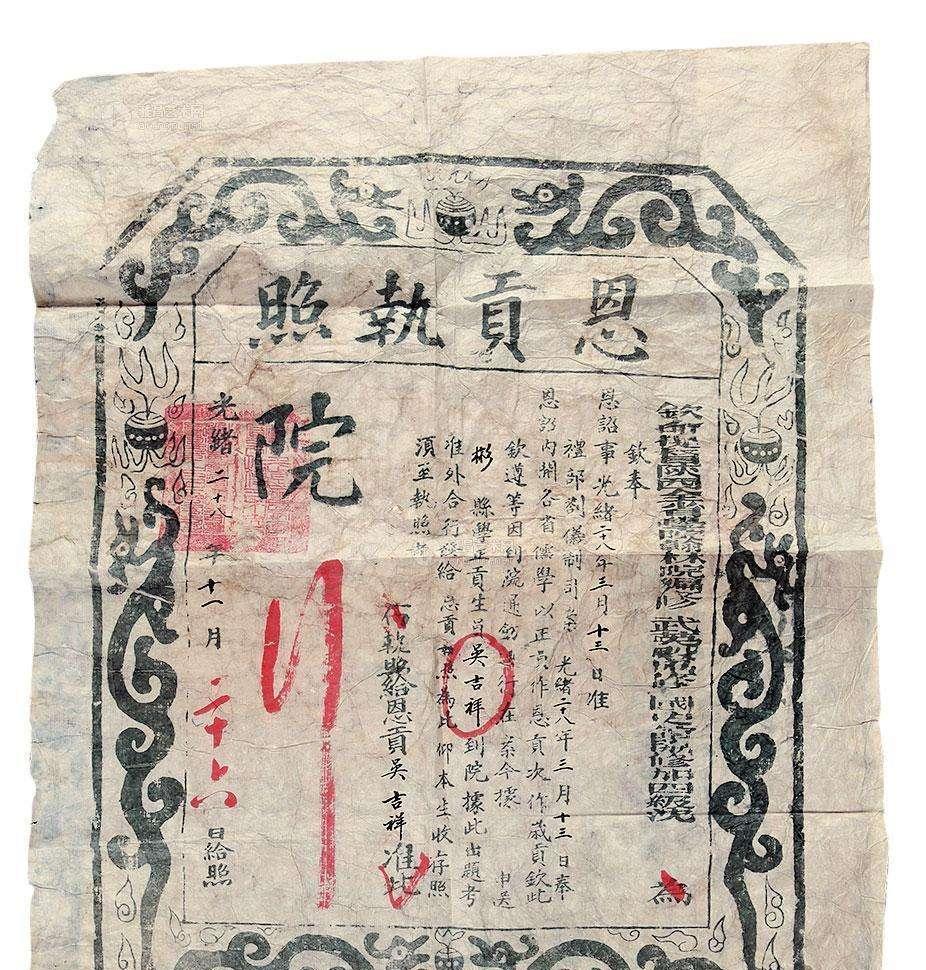 恩貢執照
欽命提督陝西全省學政翰林院編修 武英殿 國史館 修加四級沈 為
欽奉
恩詔事光緒二十八年三月十三日准
禮部劄儀制司案 光緒二十八年三月十三日奉
恩詔內開各省儒學以正貢作恩貢次作歲貢欽此
欽遵等因到院通劄遵行在案今據 申送
彬 縣學正貢生員吳吉祥到院據此出題考
准外合行發給恩貢執照為此仰本生收存照
須至執照者
右執照給恩貢吳吉祥准此
院
光緒二十八年十一月二十六日給照